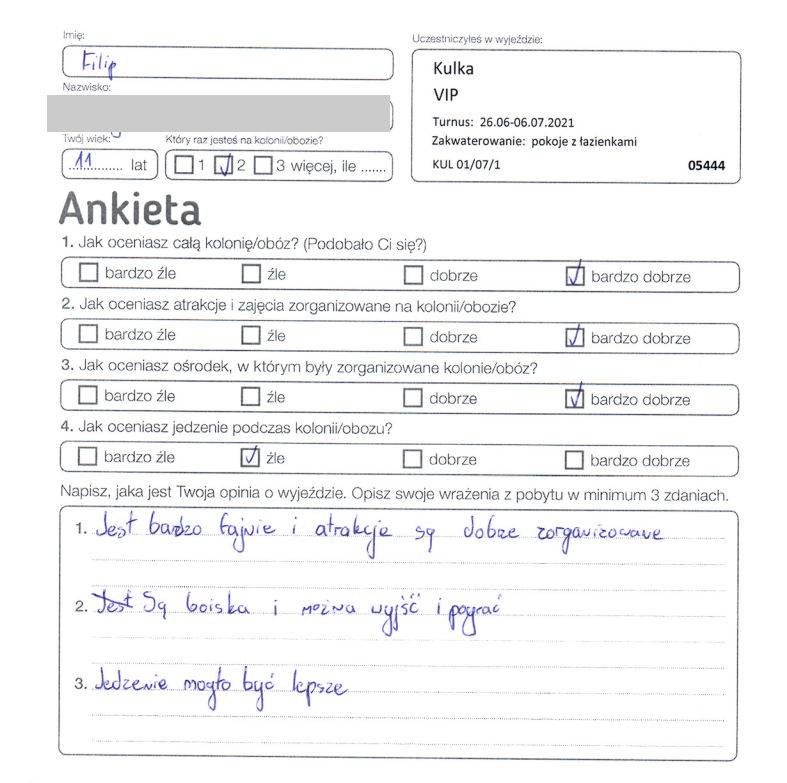 Imię:
Filip
Nazwisko:
Twój wiek:
11 lat
Który raz jesteś na kolonii/obozie?
1 2 3 więcej, ile .......
Uczestniczyłeś w wyjeździe:
Kulka
VIP
Turnus: 26.06-06.07.2021
Zakwaterowanie: pokoje z łazienkami
KUL 01/07/1 05444
Ankieta
1. Jak oceniasz całą kolonię/obóz? (Podobało Ci się?)
bardzo źle źle dobrze bardzo dobrze
2. Jak oceniasz atrakcje i zajęcia zorganizowane na kolonii/obozie?
bardzo źle źle dobrze bardzo dobrze
3. Jak oceniasz ośrodek, w którym były zorganizowane kolonie/obóz?
bardzo źle źle dobrze bardzo dobrze
4. Jak oceniasz jedzenie podczas kolonii/obozu?
bardzo źle źle dobrze bardzo dobrze
Napisz, jaka jest Twoja opinia o wyjeździe. Opisz swoje wrażenia z pobytu w minimum 3 zdaniach.
1. Jest bardzo fajnie i atrakcje są dobrze zorganizowane
2. Jest Są boiska i można wyjść i pograć
3. Jedzenie mogło być lepsze